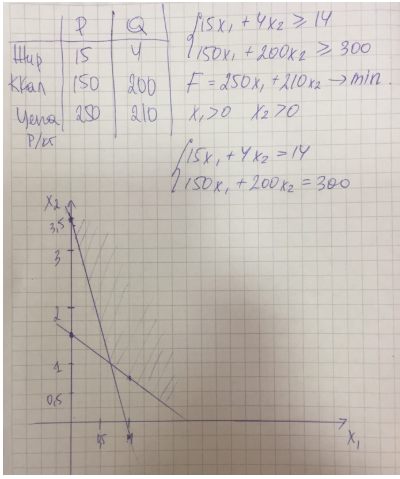 P Q
Жир 15 4
Ккал 150 200
Цена 250 210
Р/кг
15x₁ + 4x₂ ≥ 14
150x₁ + 200x₂ ≥ 300
F = 250x₁ + 210x₂ → min.
x₁ > 0 x₂ > 0
15x₁ + 4x₂ = 14
150x₁ + 200x₂ = 300
x₂
3,5
3
2
1
0,5
0,5 1
x₁